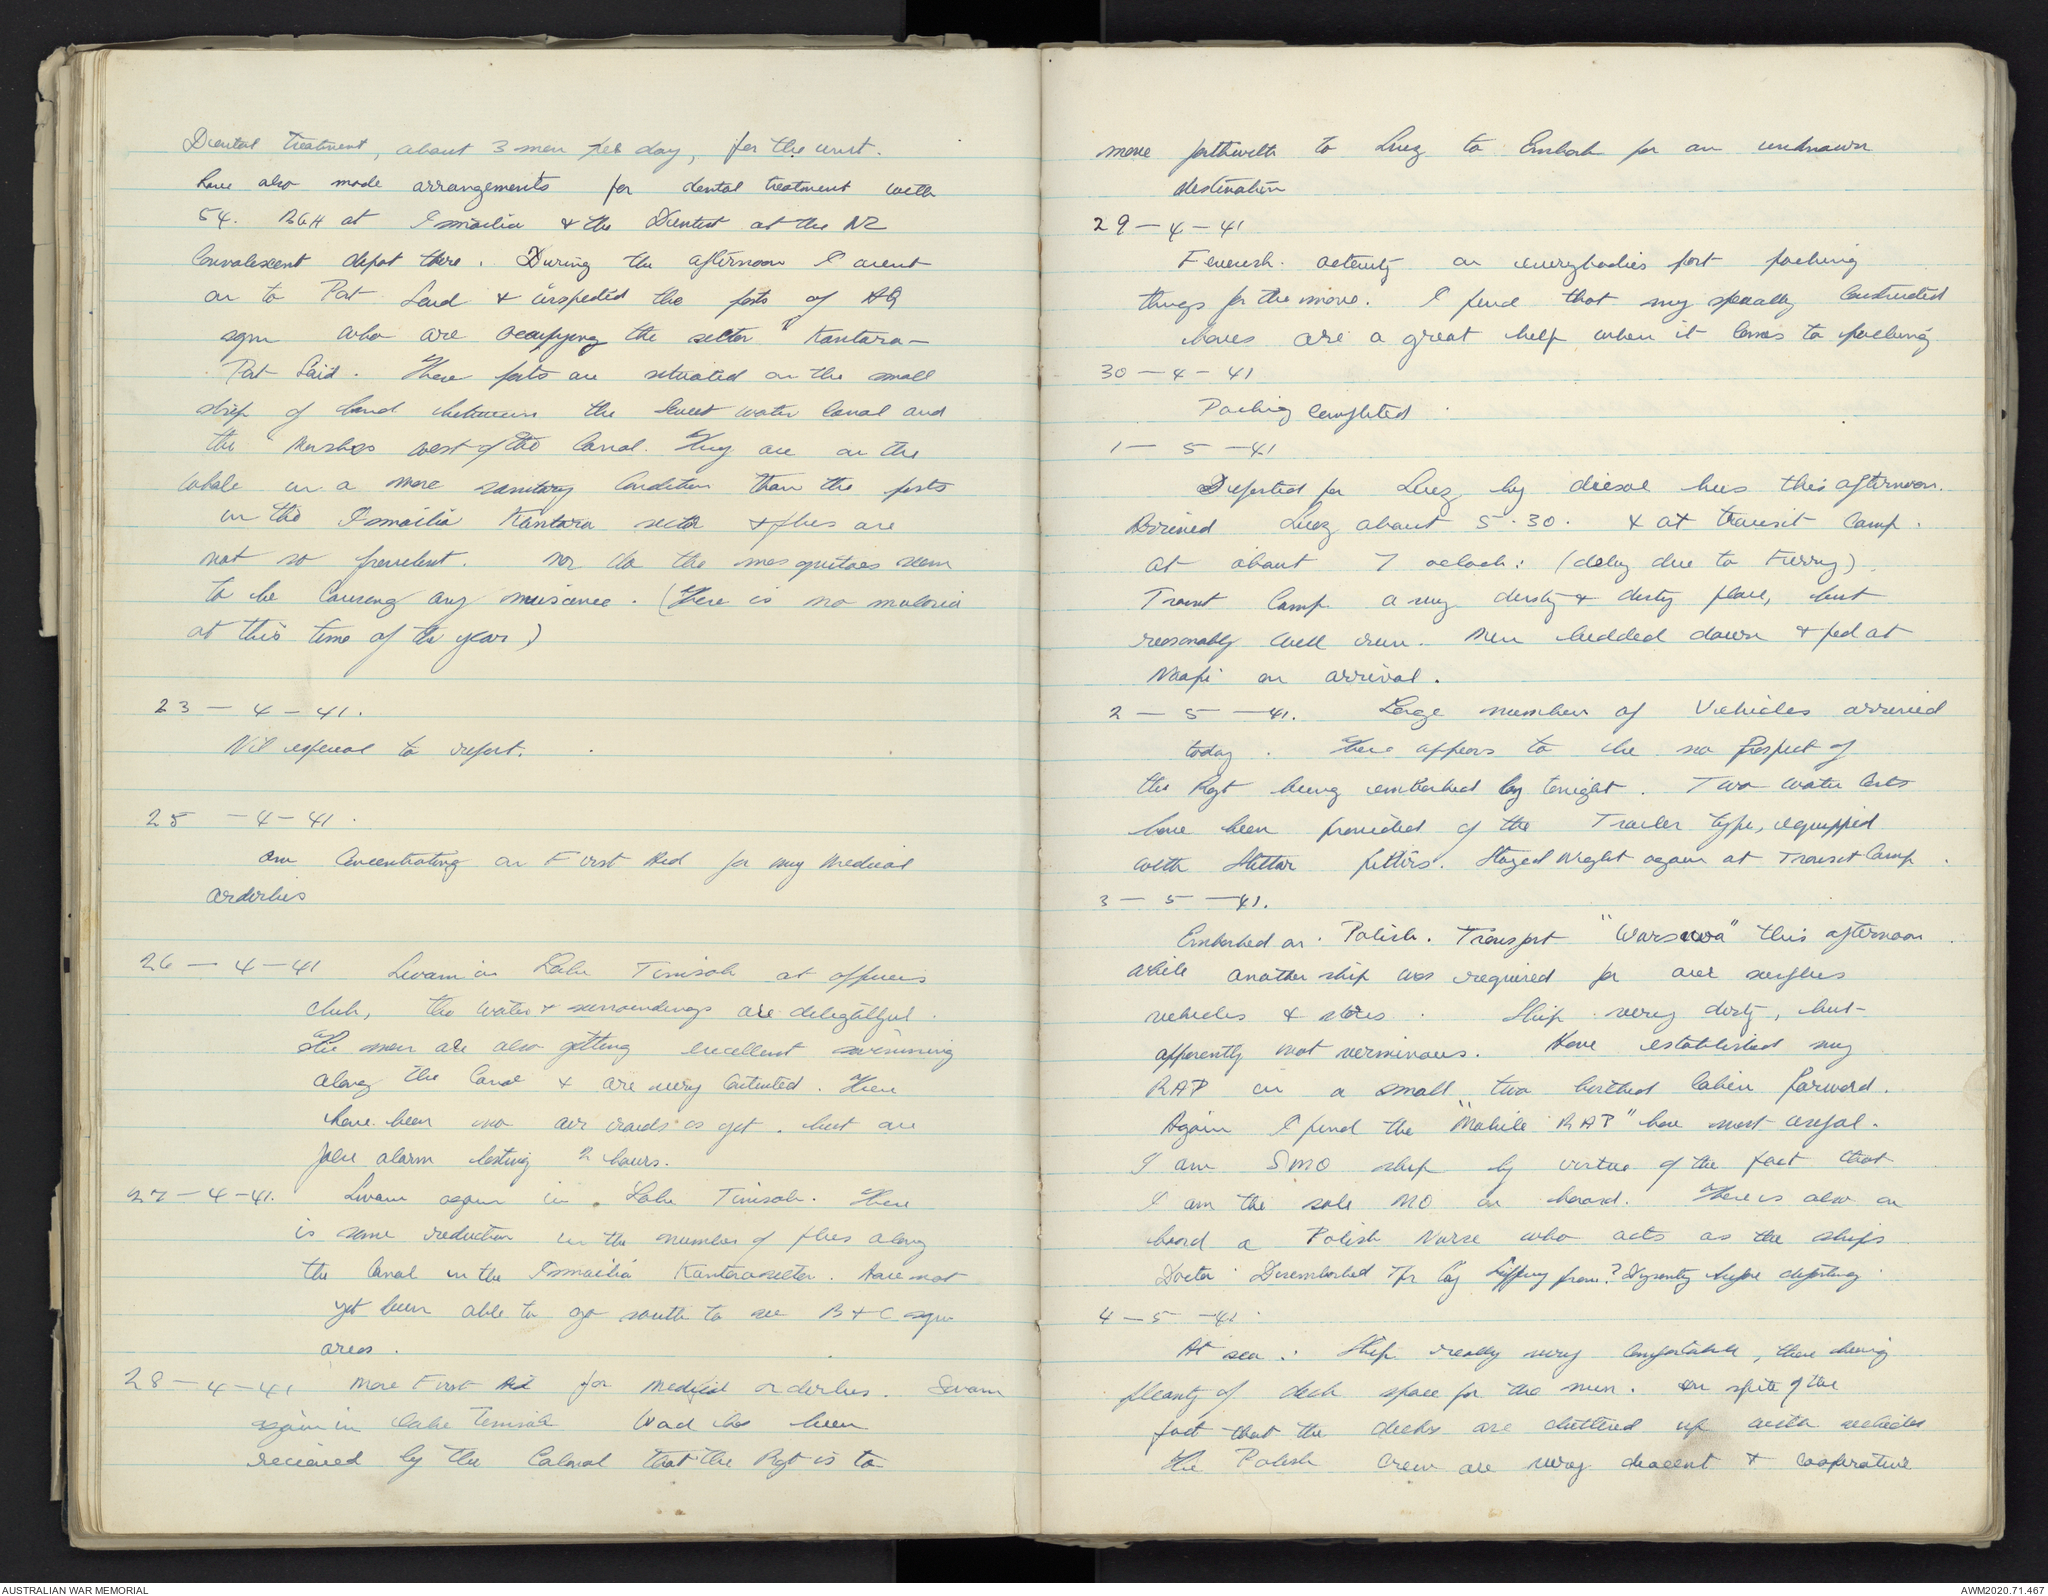 Dental treatment, about 3 men per day, for the unit.
have also made arrangements for dental treatment with
54. BGH at Ismailia & the Dentist at the NZ
Convalescent depot there. During the afternoon I went
on to Port Said & inspected the posts of HQ
sqn who are occupying the sector Kantara -
Port Said. These posts are situated on the small
strip of land between the sweet water Canal and
the Marshes west of the Canal. They are on the
whole in a more sanitary condition than the posts
in the Ismailia Kantara sector & flies are
not so prevelent. Nor do the mosquitoes seem
to be causing any nuisance. (There is no malaria
at this time of the year)
23 - 4 - 41.
Nil especial to report.
25 - 4 - 41.
Am Concentrating on First Aid for my Medical
orderlies
26 - 4 - 41 Swam in Lake Timsah at officers
club, the water & surroundings are delightful.
The men are also getting excellent swimming
along the Canal & are very contented. There
have been no air raids as yet. but one
false alarm lasting 2 hours.
27 - 4 - 41. Swam again in Lake Timsah. There
is some reduction in the number of flies along
the Canal in the Ismailia Kantara sector. Have not
yet been able to go south to see B & C sqn
areas.
28 - 4 - 41 More First Aid for medical orderlies. Swam
again in lake Timsah Word has been
recieved by the Colonel that the Rgt is to
move forthwith to Suez to Embark for an unknown
destination
29 - 4 - 41
Feverish activity on everybodies part packing
things for the move. I find that my specially constructed
boxes are a great help when it comes to packing
30 - 4 - 41
Packing completed.
1 - 5 - 41
Departed for Suez by diesel bus this afternoon.
Arrived Suez about 5.30. & at transit Camp.
at about 7 oclock: (delay due to Ferry).
Transit Camp a very dusty & dirty place, but
reasonably well run. Men bedded down & fed at
Naafi on arrival.
2 - 5 - 41. Large number of Vehicles arrived
today. There appears to be no prospect of
the Rgt being embarked by tonight. Two water carts
have been provided of the Trailer type, equipped
with Stellar filters. Stayed Night again at Transit Camp.
3 - 5 - 41.
Embarked on Polish Transport "Warszawa" this afternoon.
while another ship was required for our surplus
vehicles & stores. Ship very dirty, but
apparently not verminous. Have established my
RAP in a small two berthed Cabin forward.
Again I find the "Mobile RAP" box most useful.
I am SMO ship by virtue of the fact that
I am the sole MO on board. There is also on
board a Polish Nurse who acts as the ships
Doctor. Disembarked Tpr suffering from? Dysentry before departing.
4 - 5 - 41.
At sea: Ship really very comfortable, there being
pleanty of deck space for the men. In spite of the
fact that the decks are cluttered up with vehicles
The Polish Crew are very deacent & cooperative